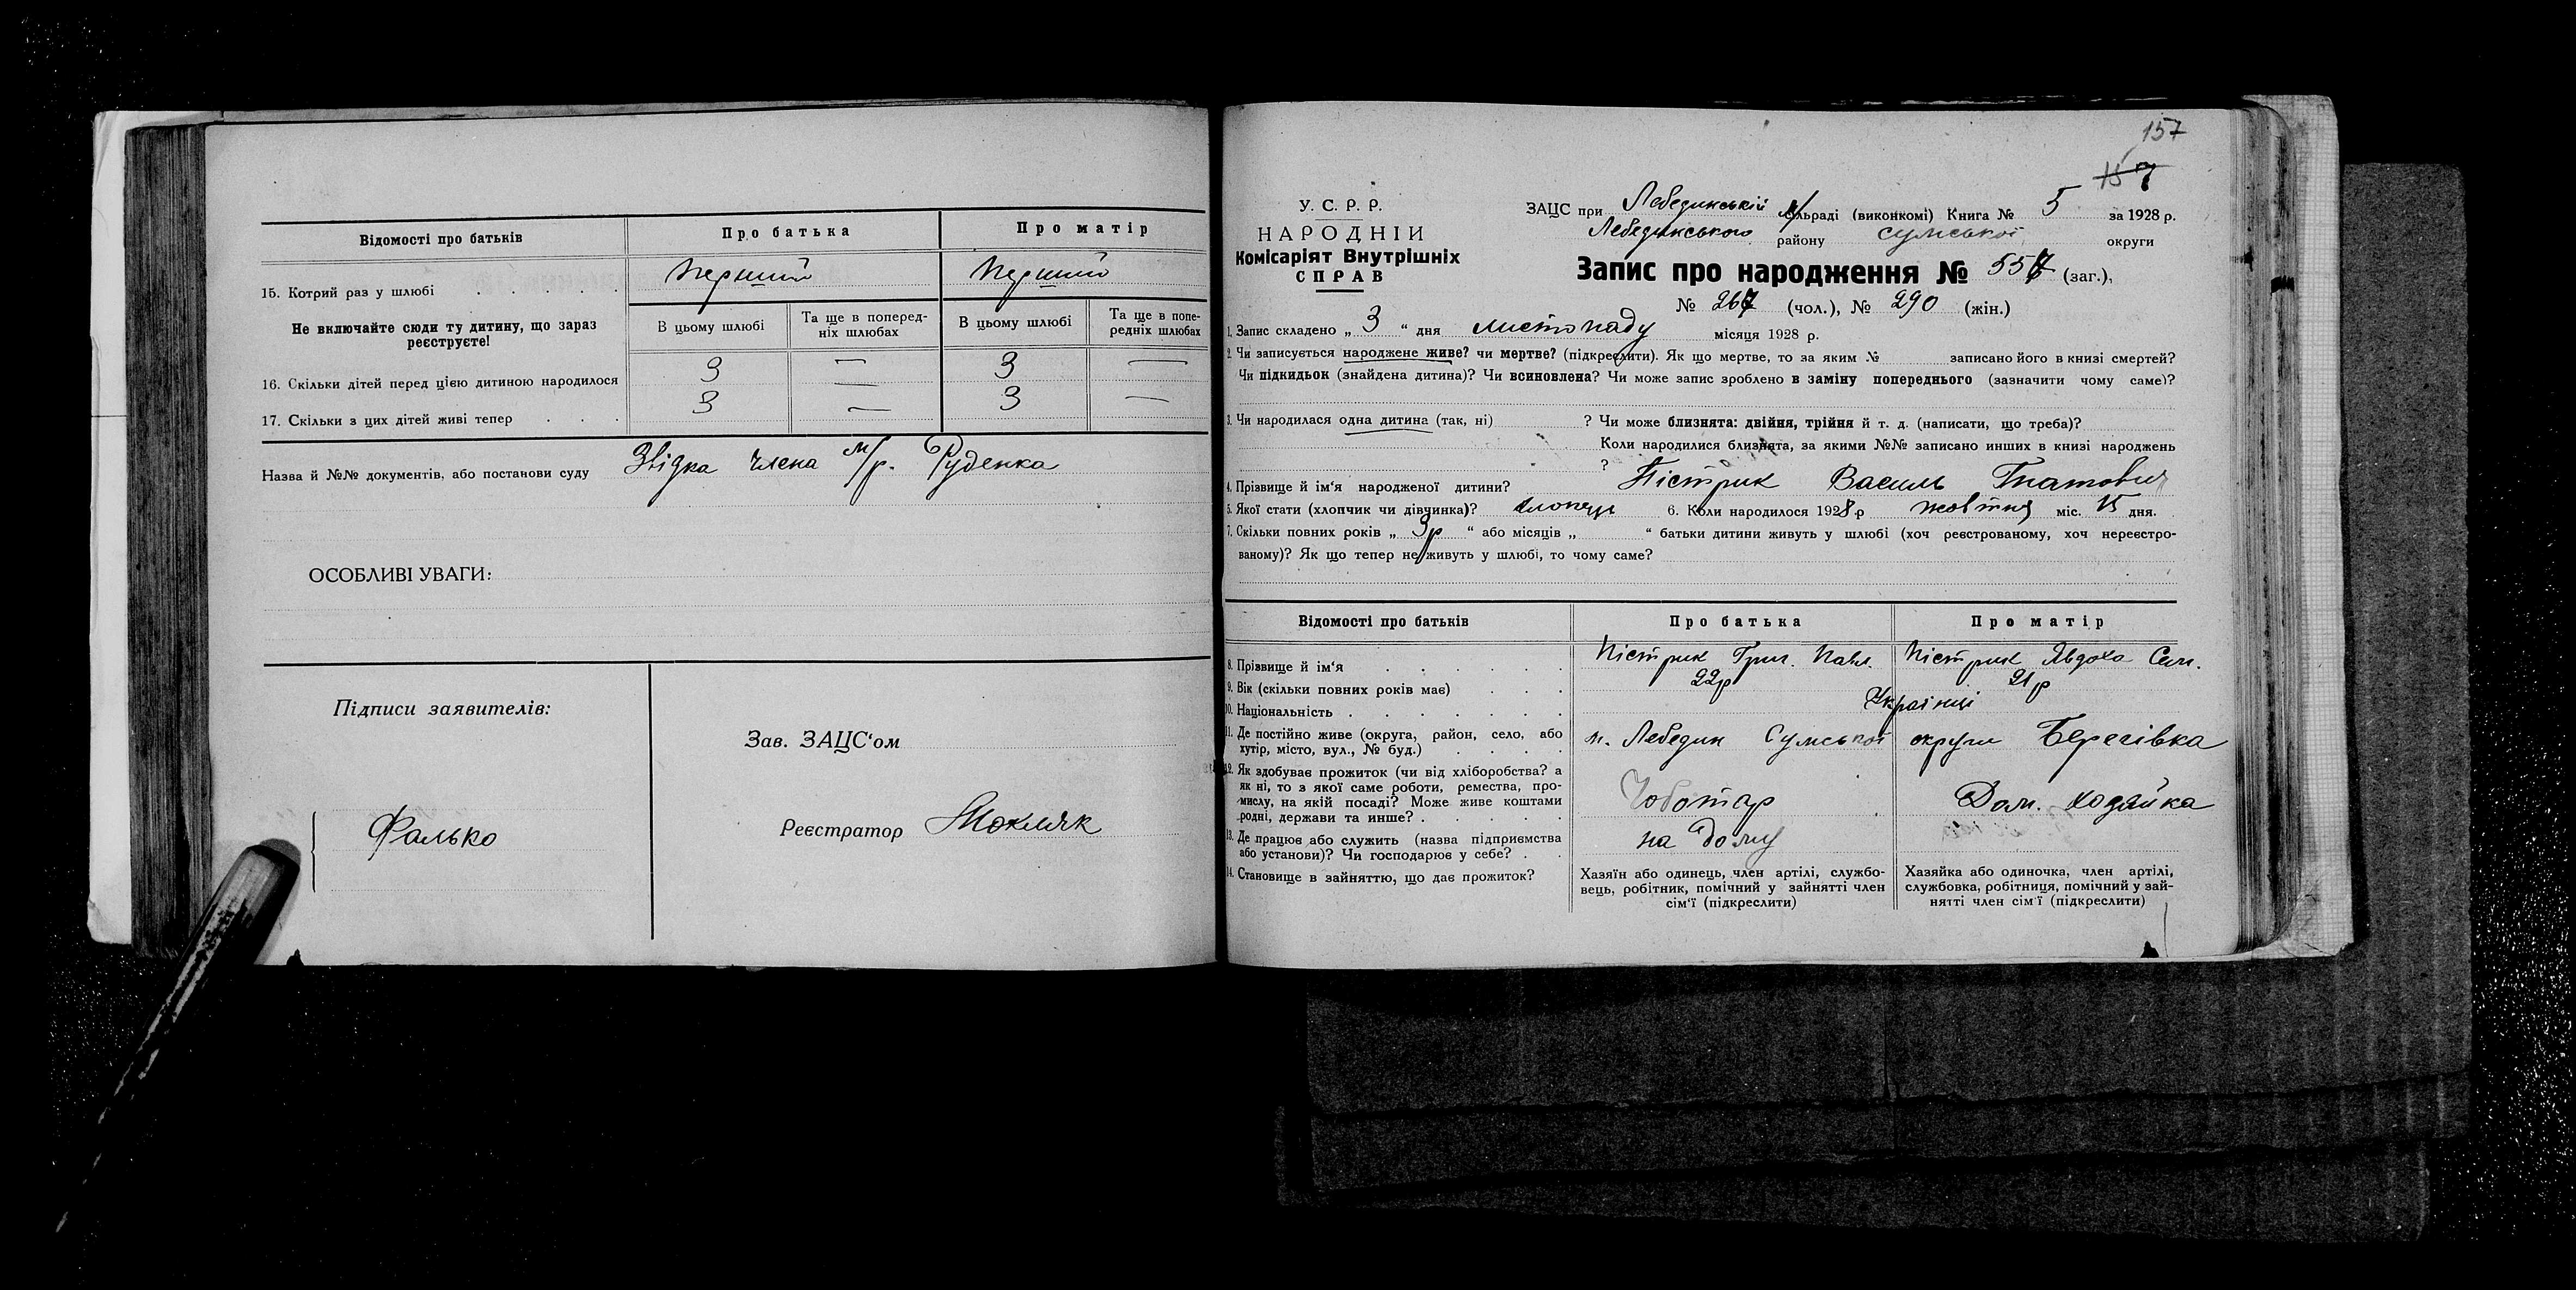 Відомості про батьків
Про батька
Про матір
15. Котрий раз у шлюбі
перший
перший
Не включайте сюди ту дитину, що зараз реєструєте!
В цьому шлюбі
Та ще в поперед-
ніх шлюбах
В цьому шлюбі
Та ще в попе-
редніх шлюбах
16. Скільки дітей перед цією дитиною народилося
3 — 3 —
17. Скільки з цих дітей живі тепер
3 — 3 —
Назва й №№ документів, або постанови суду Звідка члена м/р. Руденка
ОСОБЛИВІ УВАГИ:
Підписи заявителів:
Фалько
Зав. ЗАЦС'ом
Реєстратор Мокляк
157
У. С. Р. Р.
НАРОДНІЙ
Комісаріят Внутрішніх
СПРАВ
ЗАЦС при Лебединській м/ сільраді (виконкомі) Книга № 5 за 1928 р.
Лебединського району Сумської округи
Запис про народження № 557 (заг.),
№ 267 (чол.), № 290 (жін.)
1. Запис складено „ 3 “ дня листопаду місяця 1928 р.
2. Чи записується народжене живе? чи мертве? (підкреслити). Як що мертве, то за яким № записано його в книзі смертей?
Чи підкидьок (знайдена дитина)? Чи всиновлена? Чи може запис зроблено в заміну попереднього (зазначити чому саме)?
3. Чи народилася одна дитина (так, ні) ? Чи може близнята: двійня, трійня й т. д. (написати, що треба)?
Коли народилися близнята, за якими №№ записано инших в книзі народжень
?
4. Прізвище й ім'я народженої дитини? Пістрик Василь Гнатович
5. Якої стати (хлопчик чи дівчинка)? хлопець 6. Коли народилося 1928 р жовтня міс. 15 дня.
7. Скільки повних років „ 3р “ або місяців „ “ батьки дитини живуть у шлюбі (хоч реєстрованому, хоч нереєстро-
ваному)? Як що тепер не живуть у шлюбі, то чому саме?
Відомості про батьків
Про батька
Про матір
8. Прізвище й ім'я
Пістрик Григ. Павл.
Пістрик Явдоха Сем.
9. Вік (скільки повних років має)
22р
21р
10. Національність
Українці
11. Де постійно живе (округа, район, село, або
хутір, місто, вул., № буд.)
м. Лебедин Сумської округи Бересівка
12. Як здобуває прожиток (чи від хліборобства? а
як ні, то з якої саме роботи, ремества, про-
мислу, на якій посаді? Може живе коштами
родні, держави та инше?
Чоботар
Дом. хазяйка
13. Де працює або служить (назва підприємства
або установи)? Чи господарює у себе?
на дому
14. Становище в зайняттю, що дає прожиток?
Хазяїн або одинець, член артілі, службо-
вець, робітник, помічний у зайнятті член
сім'ї (підкреслити)
Хазяйка або одиночка, член артілі,
службовка, робітниця, помічний у зай-
нятті член сім'ї (підкреслити)